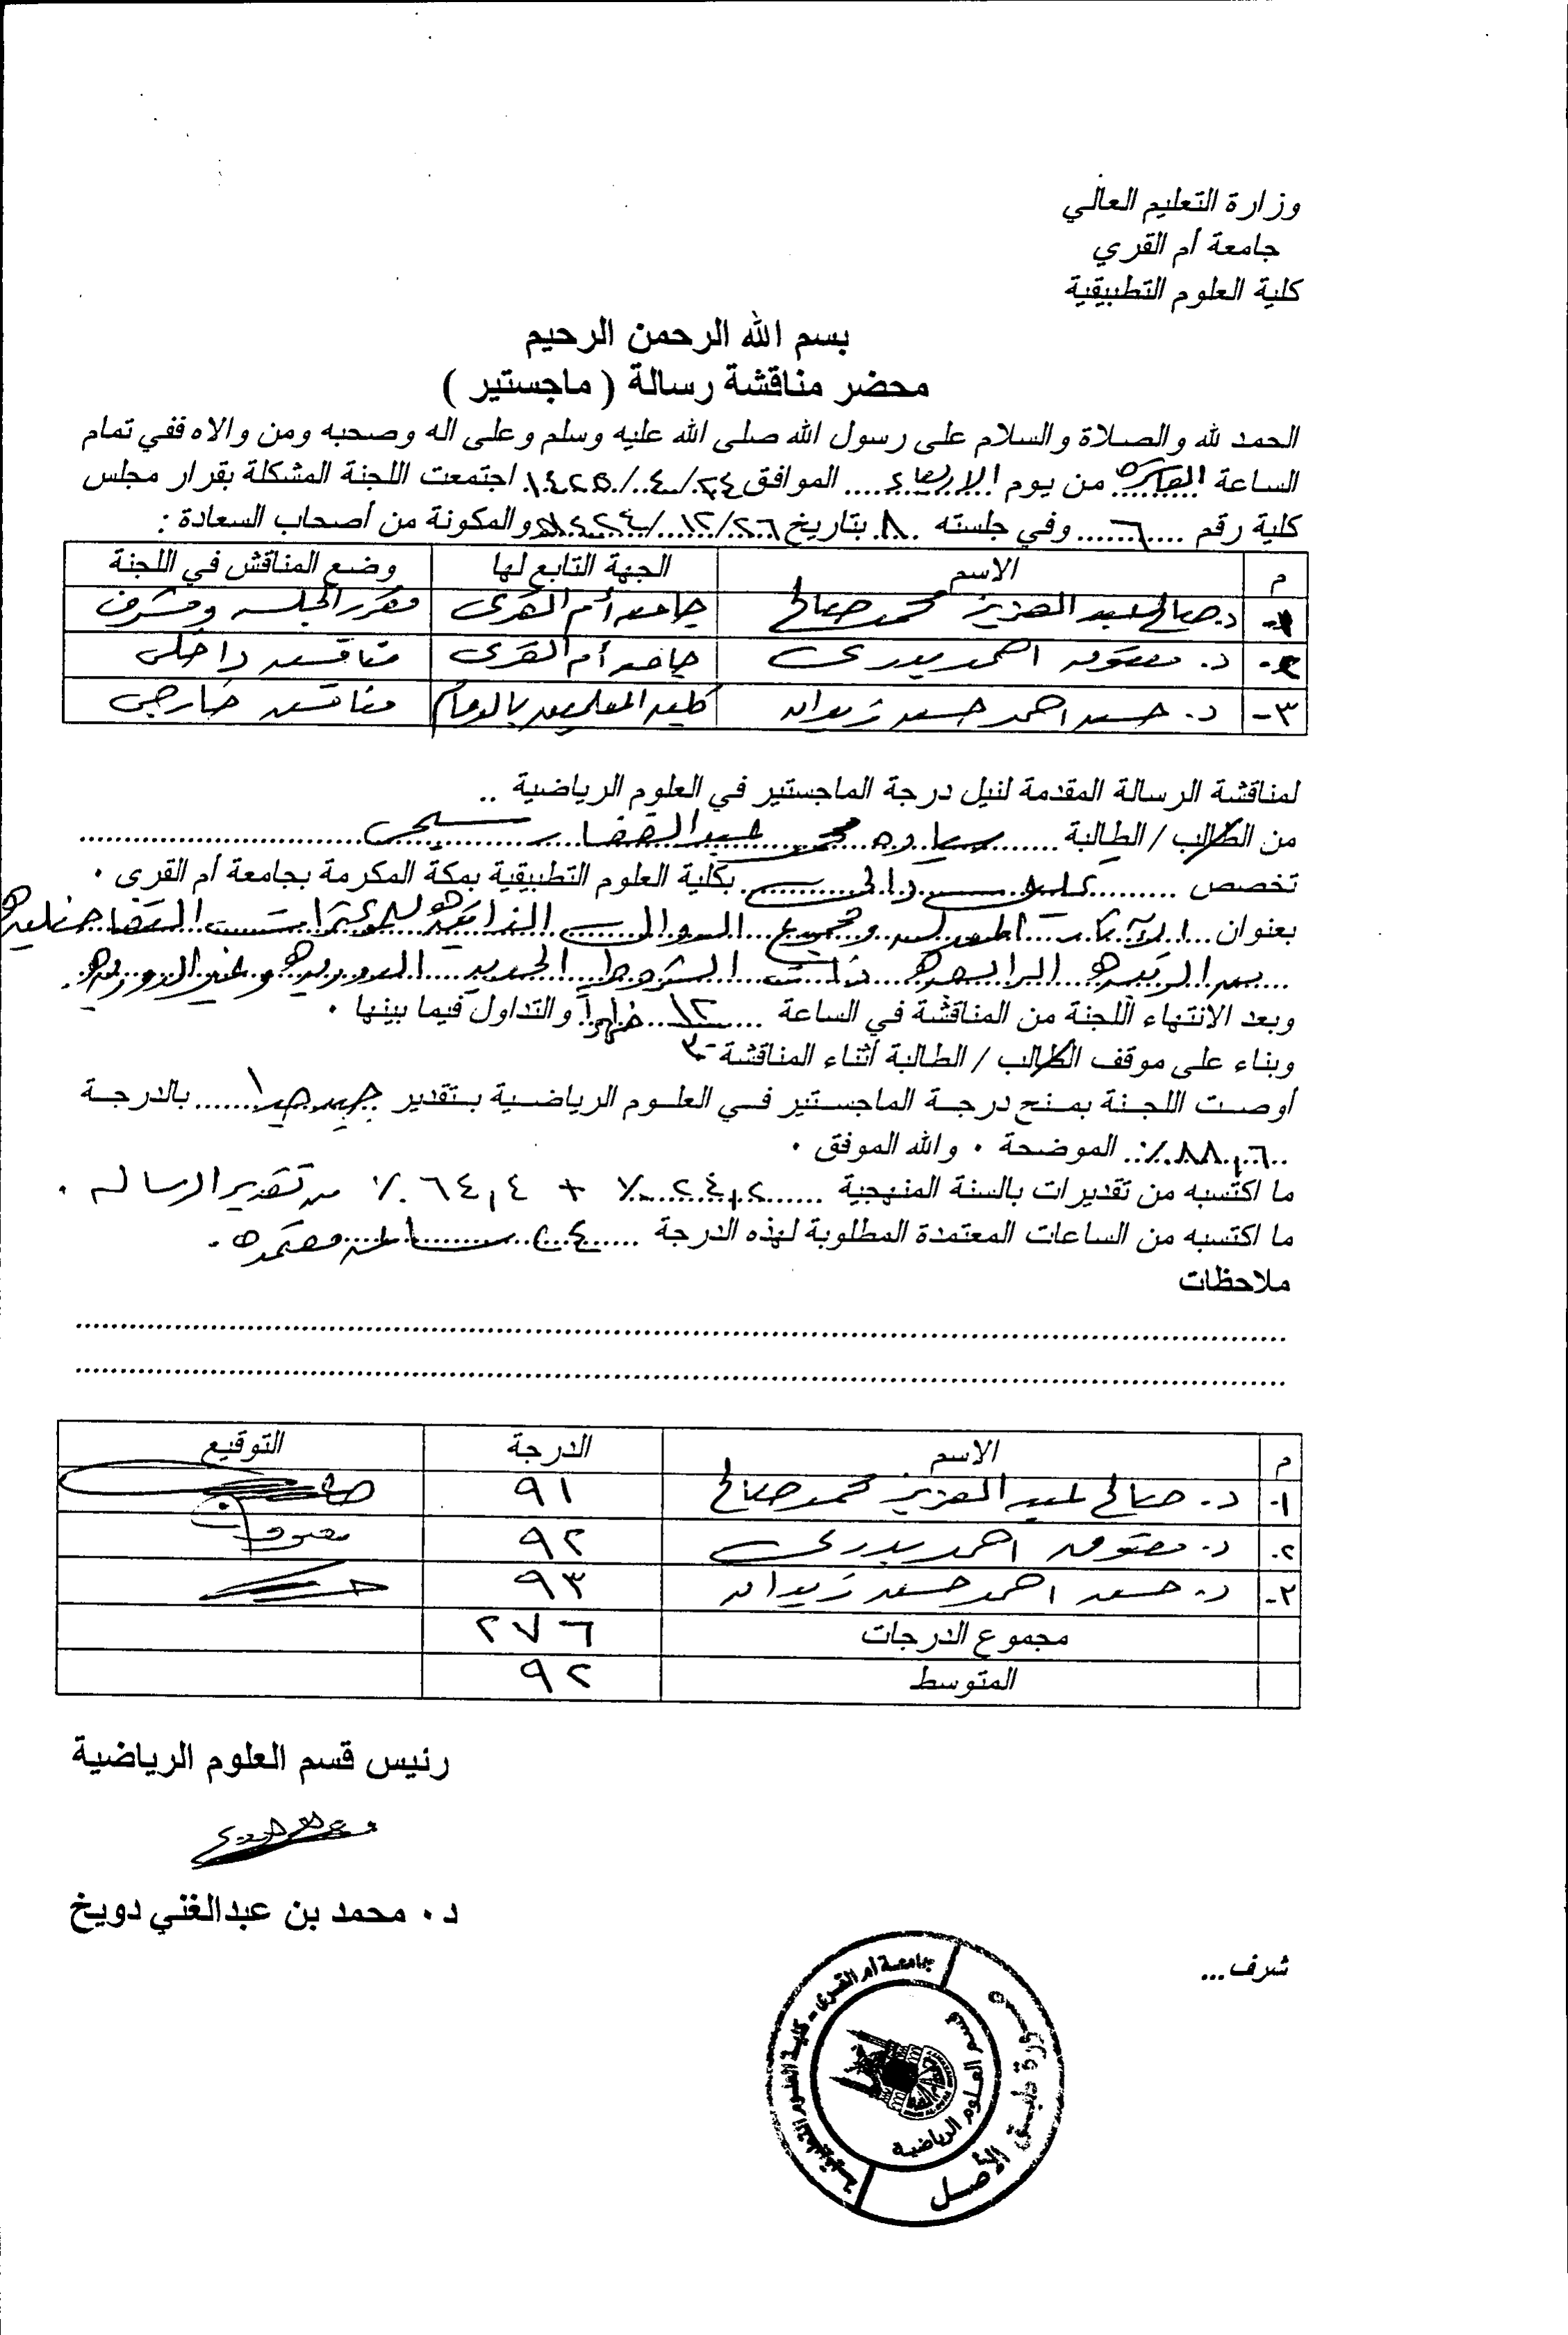 وزارة التعليم العالي
جامعة أم القري
كلية العلوم التطبيقية
بسم الله الرحمن الرحيم
محضر مناقشة رسالة ( ماجستير )
الحمد لله والصلاة والسلام على رسول الله صلى الله عليه وسلم وعلى اله وصحبه ومن والاه ففي تمام
الساعة العاشرة من يوم الاربعاء .... الموافق ٢٤/٤/١٤٢٥ اجتمعت اللجنة المشكلة بقرار مجلس
كلية رقم .... ٦ ...... وفي جلسته ٨ بتاريخ ٢٦/١٢/١٤٢٤هـ والمكونة من أصحاب السعادة :
م الاسم الجهة التابع لها وضع المناقش في اللجنة
١- د. صالح عبد العزيز محمد صالح جامعه أم القرى مقرر الجلسه ومشرف
٢- د. معتوق احمد بدرى جامعه أم القرى مناقش داخلى
٣- د. حسن احمد حسن زيدان كليه المعلمين بالدمام مناقش خارجى
لمناقشة الرسالة المقدمة لنيل درجة الماجستير في العلوم الرياضية ..
من الطالب / الطالبة ........ ساره محمد عبد الغفار
تخصص .......... دالى ...... بكلية العلوم التطبيقية بمكة المكرمة بجامعة أم القرى .
بعنوان ... وتجميع الدوال الذاتية للمؤثرات التفاضليه
من الرتبه الرابعه ذات الشروط الحديه الدوريه وغير الدوريه .
وبعد الانتهاء اللجنة من المناقشة في الساعة .... ١٢ ظهراً والتداول فيما بينها .
وبناء على موقف الطالب / الطالبة أثناء المناقشة
أوصت اللجنة بمنح درجة الماجستير في العلوم الرياضية بتقدير جيد جداً ...... بالدرجة
٨٨,٦٪ الموضحة . والله الموفق .
ما اكتسبه من تقديرات بالسنة المنهجية ...... ٢٤,٢٪ + ٦٤,٤٪ من تقدير الرساله .
ما اكتسبه من الساعات المعتمدة المطلوبة لهذه الدرجة ...... ساعه معتمده .
ملاحظات
م الاسم الدرجة التوقيع
١- د. صالح عبد العزيز محمد صالح ٩١
٢- د. معتوق احمد بدرى ٩٢ معتوق
٣- د. حسن احمد حسن زيدان ٩٣
مجموع الدرجات ٢٧٦
المتوسط ٩٢
رئيس قسم العلوم الرياضية
د . محمد بن عبدالغني دويخ
شرف...
جامعة أم القرى - كلية العلوم التطبيقية
قسم العلوم الرياضية
صورة طبق الأصل